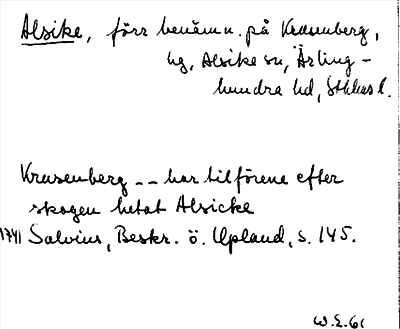 Alsike, förr benämn. på Krusenberg,
hg, Alsike sn, Ärling-
hundra hd, Sthlms l.
Krusenberg -- har tilförene efter
skogen hetat Alsicke
1741 Salvius, Beskr. ö. Upland, s. 145.
W.E. 61